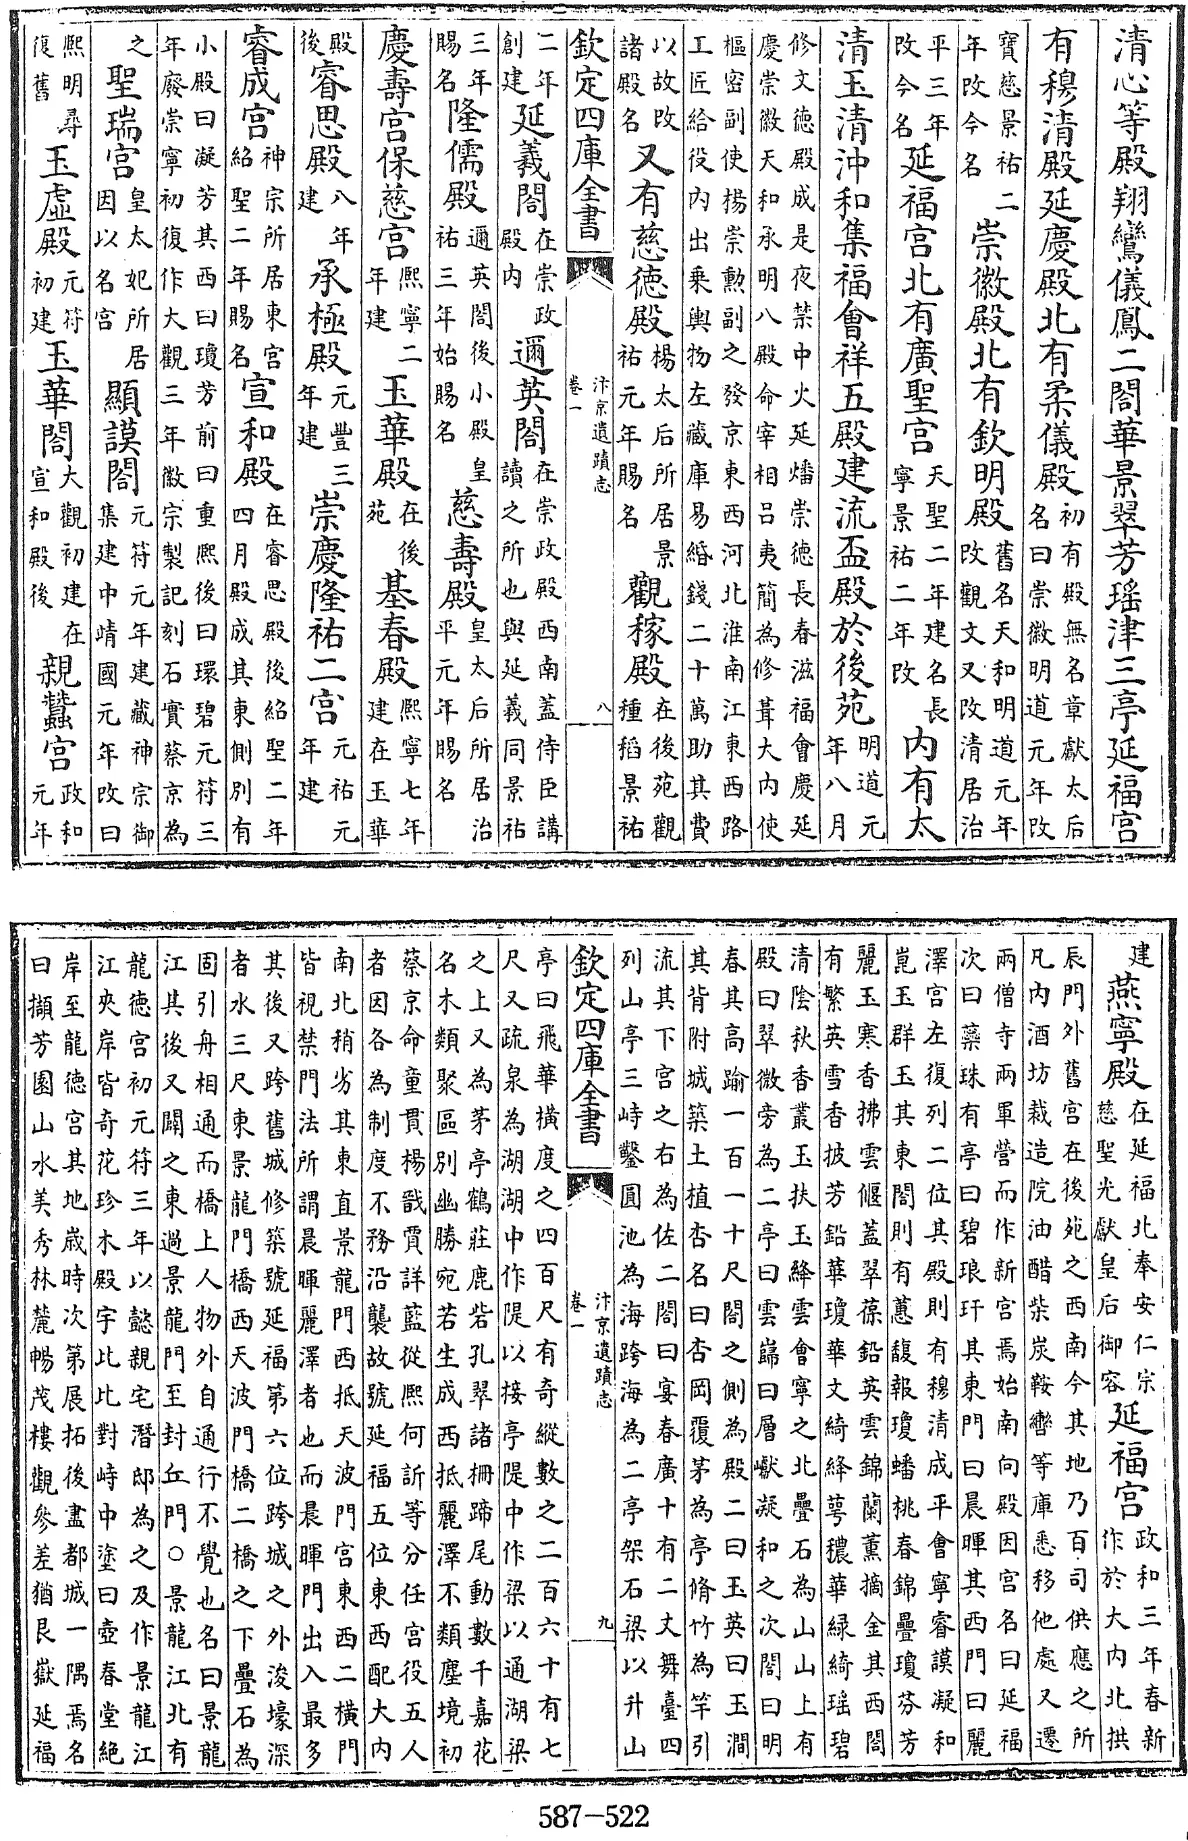 清心等殿翔鸞儀鳳二閣華景翠芳瑤津三亭延福宮
有穆清殿延慶殿北有柔儀殿初有殿無名章獻太后名曰崇徽明道元年改
寶慈景祐二年改今名崇徽殿北有欽明殿舊名天和明道元年改觀文又改清居治
平三年改今名延福宮北有廣聖宮天聖二年建名長寧景祐二年改內有太
清玉清沖和集福會祥五殿建流盃殿於後苑明道元年八月
修文德殿成是夜禁中火延燔崇德長春滋福會慶延
慶崇徽天和承明八殿命宰相呂夷簡為修葺大內使
樞密副使楊崇勲副之發京東西河北淮南江東西路
工匠給役內出乗輿物左藏庫易緡錢二十萬助其費
以故改諸殿名又有慈德殿楊太后所居景祐元年賜名觀稼殿在後苑觀種稻景祐
欽定四庫全書
汴京遺蹟志
卷一
八
二年創建延義閣在崇政殿內邇英閣在崇政殿西南蓋侍臣講讀之所也與延義同景祐
三年賜名隆儒殿邇英閣後小殿皇祐三年始賜名慈壽殿皇太后所居治平元年賜名
慶壽宮保慈宮熙寧二年建玉華殿在後苑基春殿熙寧七年建在玉華
殿後睿思殿八年建承極殿元豐三年建崇慶隆祐二宮元祐元年建
睿成宮神宗所居東宮紹聖二年賜名宣和殿在睿思殿後紹聖二年四月殿成其東側別有
小殿曰凝芳其西曰瓊芳前曰重熙後曰環碧元符三
年廢崇寧初復作大觀三年徽宗製記刻石實蔡京為
之聖瑞宮皇太妃所居因以名宮顯謨閣元符元年建藏神宗御集建中靖國元年改曰
熙明尋復舊玉虛殿元符初建玉華閣大觀初建在宣和殿後親蠶宮政和元年
建燕寧殿在延福北奉安仁宗慈聖光獻皇后御容延福宮政和三年春新作於大內北拱
辰門外舊宮在後苑之西南今其地乃百司供應之所
凡內酒坊裁造院油醋柴炭鞍轡等庫悉移他處又遷
兩僧寺兩軍營而作新宮焉始南向殿因宮名曰延福
次曰蘂珠有亭曰碧琅玕其東門曰晨暉其西門曰麗
澤宮左復列二位其殿則有穆清成平會寧睿謨凝和
崑玉群玉其東閣則有蕙馥報瓊蟠桃春錦疊瓊芬芳
麗玉寒香拂雲偃蓋翠葆鉛英雲錦蘭薰摘金其西閣
有繁英雪香披芳鉛華瓊華文綺絳萼穠華綠綺瑤碧
清陰秋香叢玉扶玉絳雲會寧之北疊石為山山上有
殿曰翠微旁為二亭曰雲巋曰層巘凝和之次閣曰明
春其高踰一百一十尺閣之側為殿二曰玉英曰玉澗
其背附城築土植杏名曰杏岡覆茅為亭脩竹為竿引
流其下宮之右為佐二閣曰宴春廣十有二丈舞臺四
列山亭三峙鑿圓池為海跨海為二亭架石梁以升山
欽定四庫全書
汴京遺蹟志
卷一
九
亭曰飛華橫度之四百尺有奇縱數之二百六十有七
尺又疏泉為湖湖中作隄以接亭隄中作梁以通湖梁
之上又為茅亭鶴莊鹿砦孔翠諸柵蹄尾動數千嘉花
名木類聚區別幽勝宛若生成西抵麗澤不類塵境初
蔡京命童貫楊戩賈詳藍從熙何訢等分任宮役五人
者因各為制度不務沿襲故號延福五位東西配大內
南北稍劣其東直景龍門西抵天波門宮東西二橫門
皆視禁門法所謂晨暉麗澤者也而晨暉門出入最多
其後又跨舊城修築號延福第六位跨城之外浚壕深
者水三尺東景龍門橋西天波門橋二橋之下疊石為
固引舟相通而橋上人物外自通行不覺也名曰景龍
江其後又闢之東過景龍門至封丘門○景龍江北有
龍德宮初元符三年以懿親宅潛邸為之及作景龍江
江夾岸皆奇花珍木殿宇比比對峙中塗曰壺春堂絕
岸至龍德宮其地歲時次第展拓後盡都城一隅焉名
曰擷芳園山水美秀林麓暢茂樓觀參差猶艮嶽延福
587—522